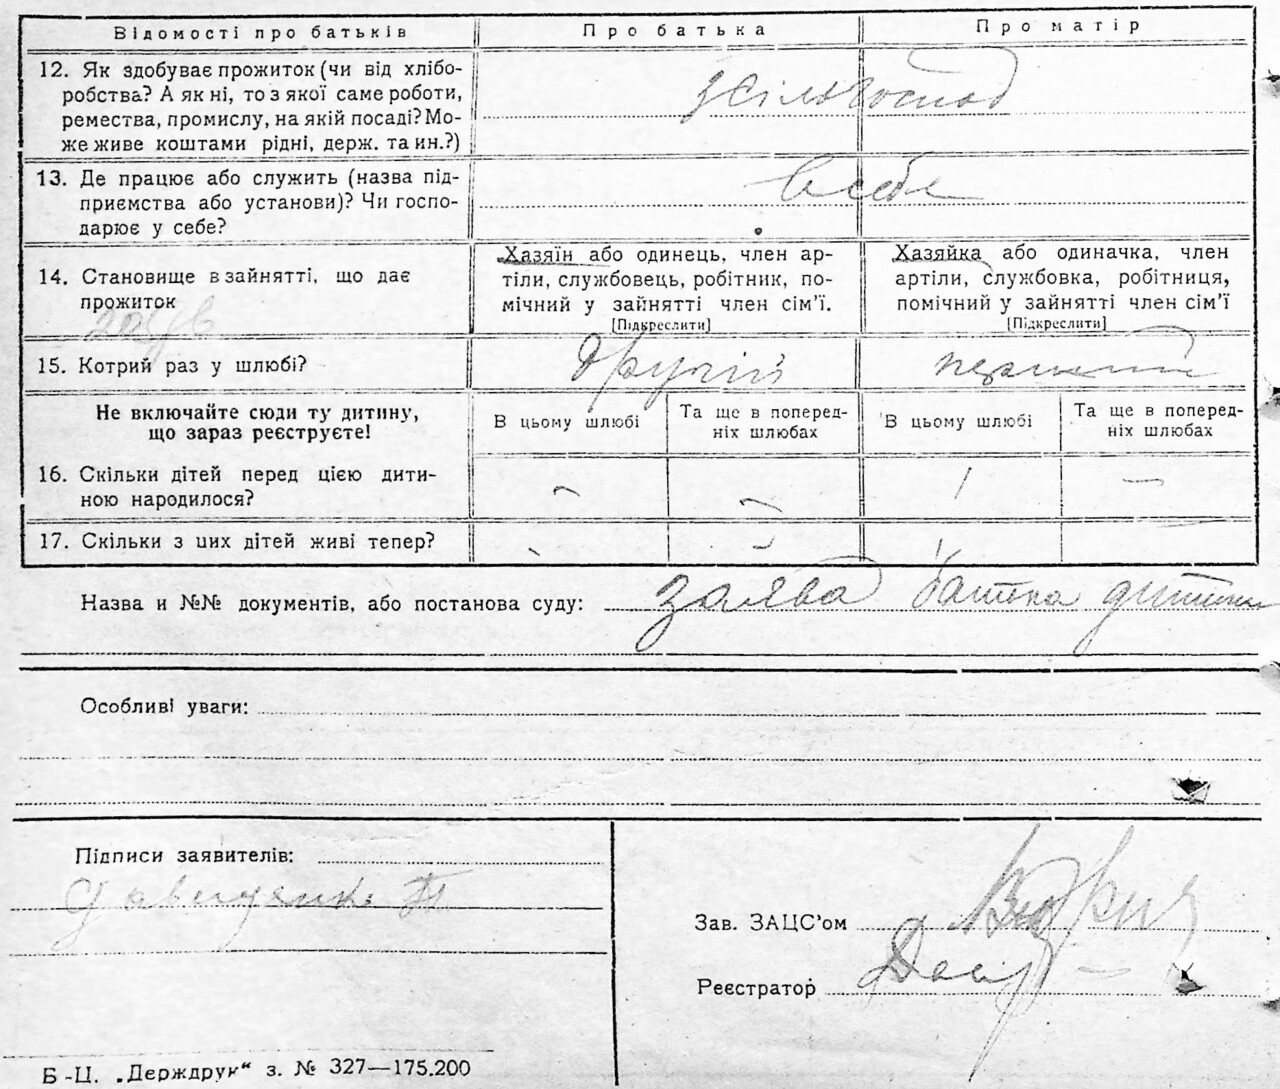 Відомості про батьків Про батька Про матір
12. Як здобуває прожиток (чи від хлібо-
робства? А як ні, то з якої саме роботи,
ремества, промислу, на якій посаді? Мо-
же живе коштами рідні, держ. та ин.?)
з сільсгоспод
13. Де працює або служить (назва під-
приємства або установи)? Чи госпо-
дарює у себе?
в себе
14. Становище в зайнятті, що дає
прожиток
Хазяїн або одинець, член ар-
тіли, службовець, робітник, по-
мічний у зайнятті член сім'ї.
[Підкреслити]
Хазяйка або одиначка, член
артіли, службовка, робітниця,
помічний у зайнятті член сім'ї
[Підкреслити]
15. Котрий раз у шлюбі? другий перший
Не включайте сюди ту дитину,
що зараз реєструєте!
В цьому шлюбі
Та ще в поперед-
ніх шлюбах
В цьому шлюбі
Та ще в поперед-
ніх шлюбах
16. Скільки дітей перед цією дити-
ною народилося?
– – 1 –
17. Скільки з цих дітей живі тепер?
Назва и №№ документів, або постанова суду: заява батька дитини
Особливі уваги:
Підписи заявителів:
Давиденко Т
Зав. ЗАЦС'ом
Реєстратор
Б-Ц. „Держдрук“ з. № 327—175.200